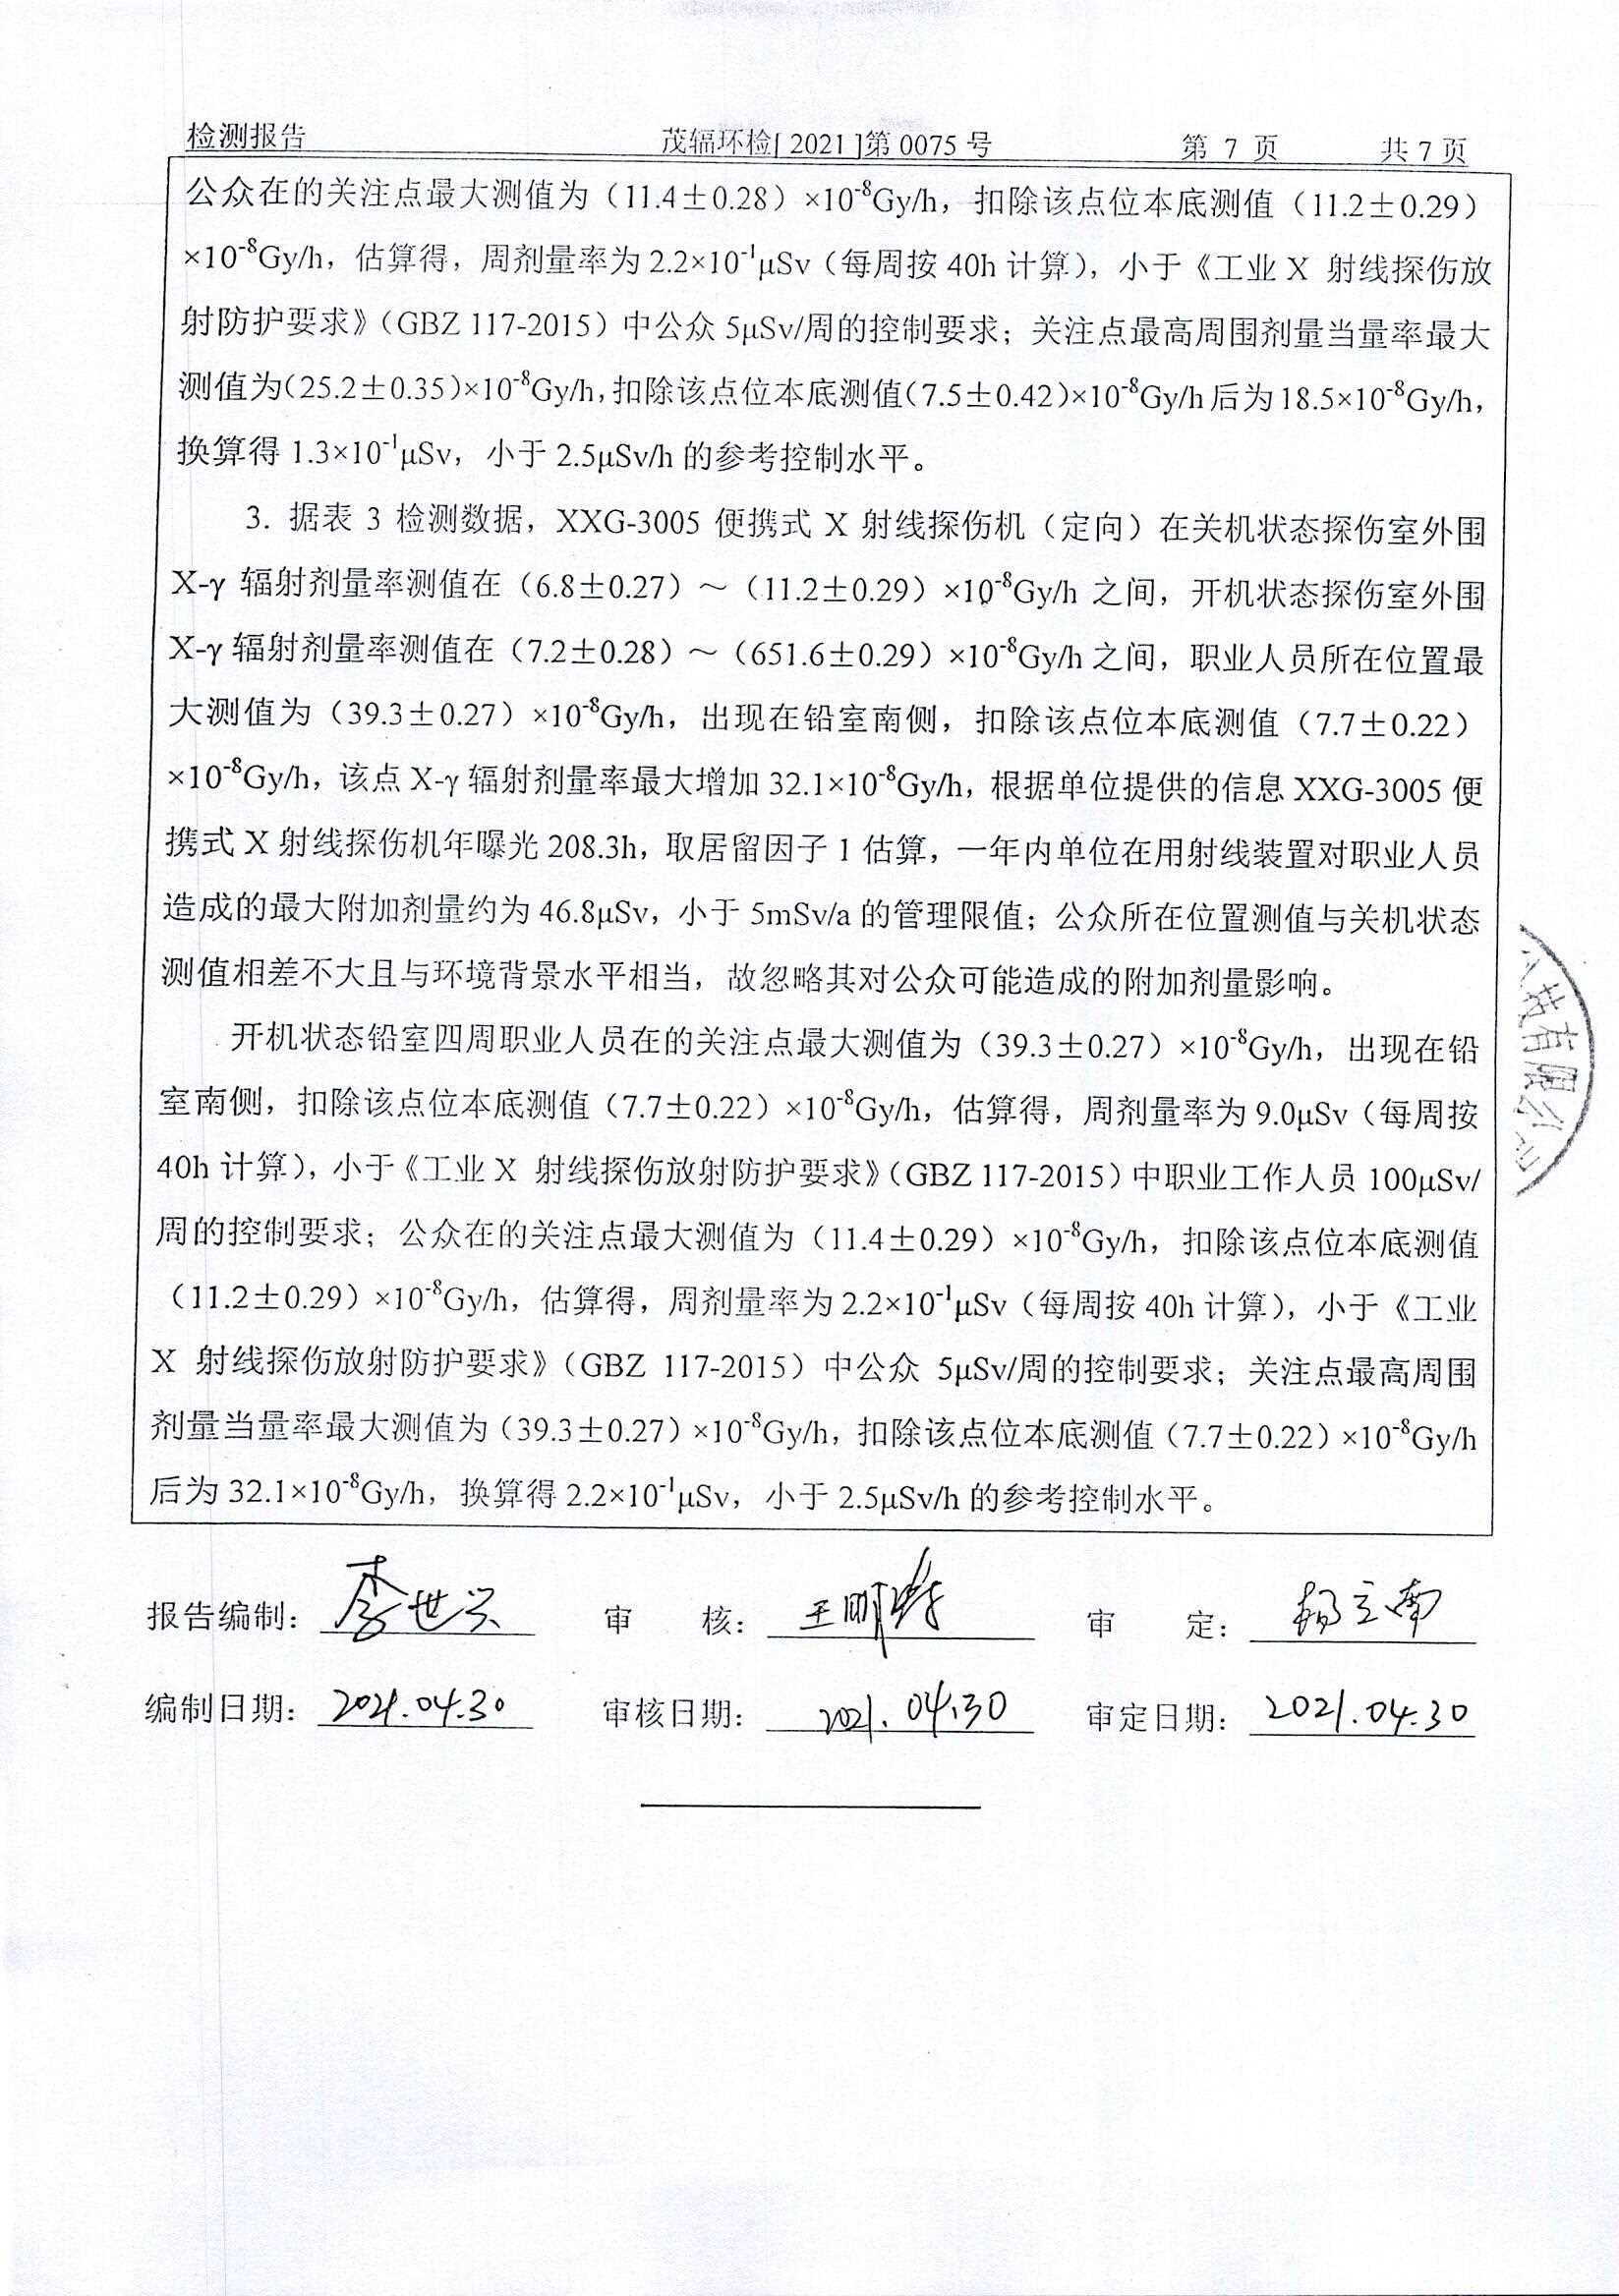 检测报告 茂辐环检[ 2021 ]第 0075 号 第 7 页 共 7 页
公众在的关注点最大测值为（11.4±0.28）×10⁻⁸Gy/h，扣除该点位本底测值（11.2±0.29）
×10⁻⁸Gy/h，估算得，周剂量率为 2.2×10⁻¹μSv（每周按 40h 计算），小于《工业 X 射线探伤放
射防护要求》（GBZ 117-2015）中公众 5μSv/周的控制要求；关注点最高周围剂量当量率最大
测值为（25.2±0.35）×10⁻⁸Gy/h，扣除该点位本底测值（7.5±0.42）×10⁻⁸Gy/h 后为 18.5×10⁻⁸Gy/h，
换算得 1.3×10⁻¹μSv，小于 2.5μSv/h 的参考控制水平。
3. 据表 3 检测数据，XXG-3005 便携式 X 射线探伤机（定向）在关机状态探伤室外围
X-γ 辐射剂量率测值在（6.8±0.27）～（11.2±0.29）×10⁻⁸Gy/h 之间，开机状态探伤室外围
X-γ 辐射剂量率测值在（7.2±0.28）～（651.6±0.29）×10⁻⁸Gy/h 之间，职业人员所在位置最
大测值为（39.3±0.27）×10⁻⁸Gy/h，出现在铅室南侧，扣除该点位本底测值（7.7±0.22）
×10⁻⁸Gy/h，该点 X-γ 辐射剂量率最大增加 32.1×10⁻⁸Gy/h，根据单位提供的信息 XXG-3005 便
携式 X 射线探伤机年曝光 208.3h，取居留因子 1 估算，一年内单位在用射线装置对职业人员
造成的最大附加剂量约为 46.8μSv，小于 5mSv/a 的管理限值；公众所在位置测值与关机状态
测值相差不大且与环境背景水平相当，故忽略其对公众可能造成的附加剂量影响。
开机状态铅室四周职业人员在的关注点最大测值为（39.3±0.27）×10⁻⁸Gy/h，出现在铅
室南侧，扣除该点位本底测值（7.7±0.22）×10⁻⁸Gy/h，估算得，周剂量率为 9.0μSv（每周按
40h 计算），小于《工业 X 射线探伤放射防护要求》（GBZ 117-2015）中职业工作人员 100μSv/
周的控制要求；公众在的关注点最大测值为（11.4±0.29）×10⁻⁸Gy/h，扣除该点位本底测值
（11.2±0.29）×10⁻⁸Gy/h，估算得，周剂量率为 2.2×10⁻¹μSv（每周按 40h 计算），小于《工业
X 射线探伤放射防护要求》（GBZ 117-2015）中公众 5μSv/周的控制要求；关注点最高周围
剂量当量率最大测值为（39.3±0.27）×10⁻⁸Gy/h，扣除该点位本底测值（7.7±0.22）×10⁻⁸Gy/h
后为 32.1×10⁻⁸Gy/h，换算得 2.2×10⁻¹μSv，小于 2.5μSv/h 的参考控制水平。
有限公司
报告编制：李世兴 审 核：王明 审 定：杨立南
编制日期：2021.04.30 审核日期：2021.04.30 审定日期：2021.04.30